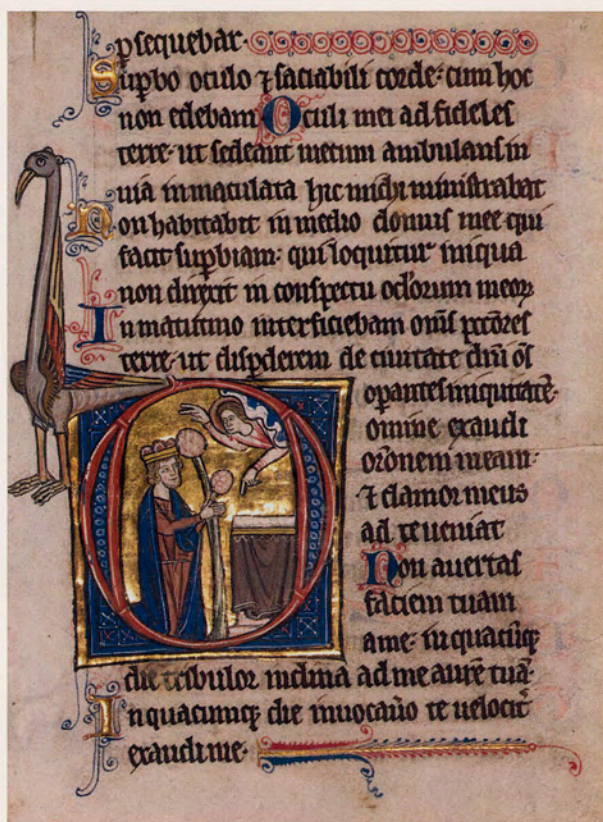 psequebar.
Supbo oculo ⁊ saciabili corde: cum hoc
non edebam Oculi mei ad fideles
terre· ut sedeant mecum ambulans in
uia inmaculata hic michi ministrabat
Non habitabit in medio domus mee qui
facit supbiam: qui loquitur iniqua
non direxit in conspectu oclorum meoꝝ
In matutino interficiebam omīs pctōres
terre· ut dispderem de ciuitate dnī oīs
opantes iniquitatē·
Domine exaudi
orōnem meam:
⁊ clamor meus
ad te ueniat
Non auertas
faciem tuam
a me· in quacūqꝫ
die tribulor inclina ad me aurē tuā·
In quacumqꝫ die inuocauo te uelocit̄
exaudi me·